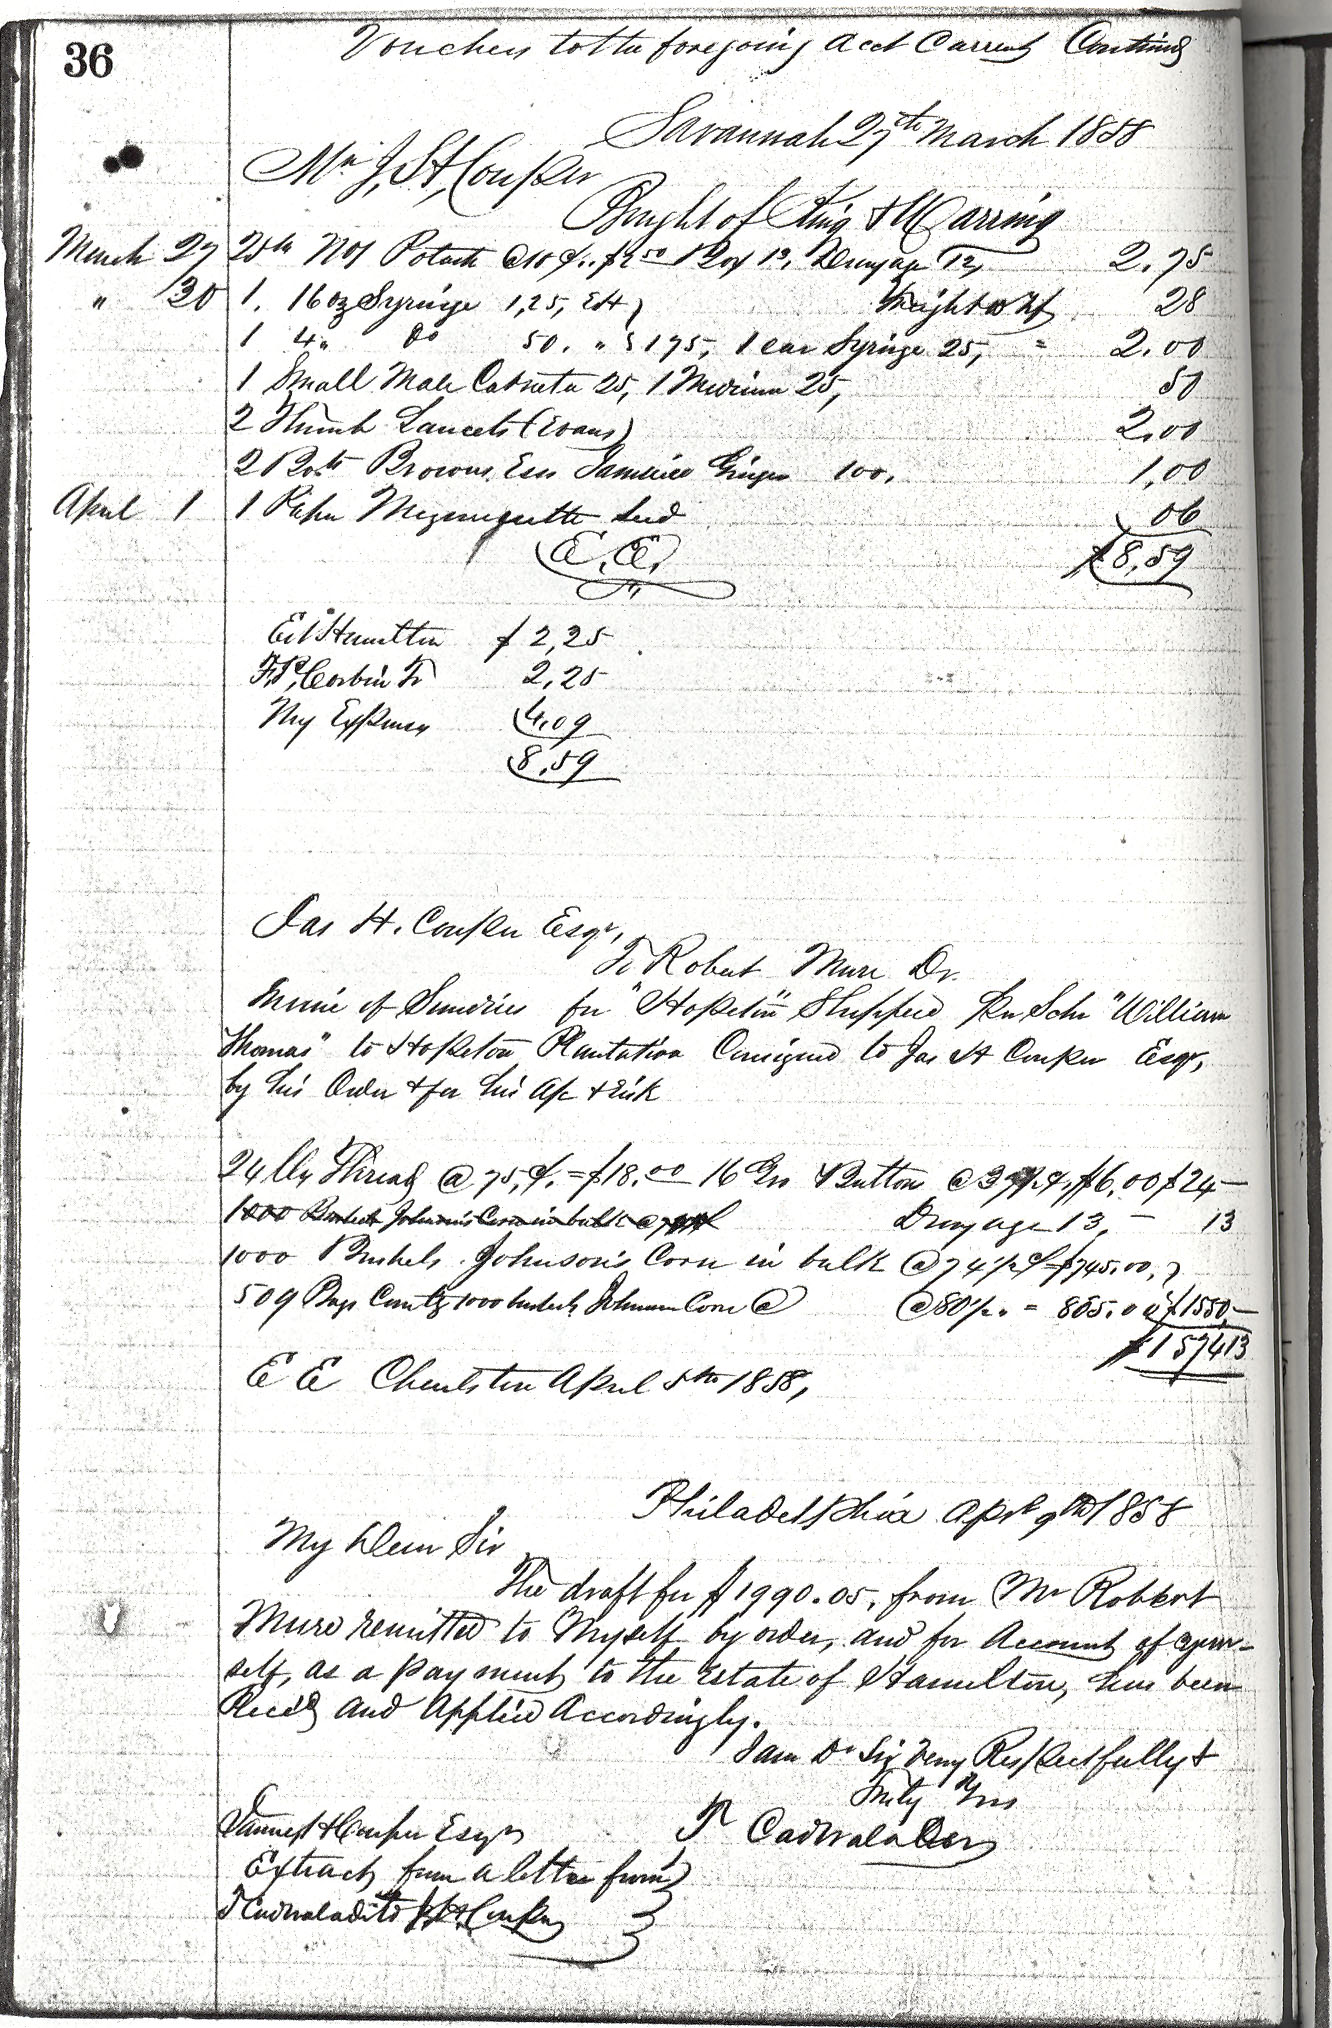 36
Vouchers to the foregoing Acct Current Continued
Savannah 27th March 1858
Mr J, H, Couper
Bought of King & Warring
March 27 25 lb No1 Potash @10 ¢ .. $2.50 Box 13, Drayage 12, 2.75
" 30 1. 16 oz Syringe 1,25, EH } freight & Wf 28
1 4 " do 50. " } 175, 1 ear Syringe 25, = 2.00
1 Small Male 25, 1 Medium 25, 50
2 Thumb Lancets (Evans) 2.00
2 Bots Browns Ess Jamaica Ginger 100. 1,00
April 1 1 Paper seed 06
E. E. $8,59
Est Hamilton $2,25
F. P, Corbin Tr 2,25
My Expenses 4.09
8,59
Jas H. Couper Esqr,
To Robert Mure Dr.
Invoice of Sundries for "Hopeton" Shipped per Schr "William
Thomas" to Hopeton Plantation Consigned to Jas H Couper Esqr,
by his Order & for his a/c & risk
24 lbs Thread @ 75,¢. = $18.00 16 Gro Button @ $6.00 $24 —
1000 Bushels Johnson's Corn in bulk @ Drayage 13, — 13
1000 Bushels Johnson's Corn in bulk @ 74½ ¢ $745.00, }
509 Bags Contg 1000 bushels Johnson Corn @ @ 80½. = 805.00 } $1550,—
$1574.13
E E Charleston April 5th 1858,
Philadelphia Aprl 9th 1858
My Dear Sir
The draft for $1990.05, from Mr Robbert
Mure remitted to Myself by order, and for Account of your-
self, as a payment to the Estate of Hamilton, has been
Recd and Applied Accordingly.
I am Dr Sir Very Respectfully &
Truly Yrs
T Cadwalader
James H Couper Esqr
Extract from a letter from }
T Cadwalader to J H Couper }